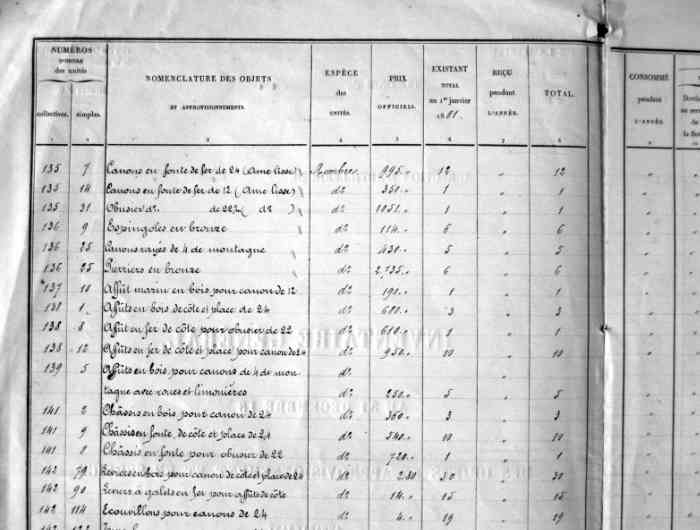 NUMÉROS
D'ORDRE
des unités
collectives. simples.
NOMENCLATURE DES OBJETS
ET APPROVISIONNEMENTS.
ESPÈCE
des
UNITÉS.
PRIX
OFFICIELS.
EXISTANT
TOTAL
au 1er janvier
1881.
REÇU
pendant
L'ANNÉE.
TOTAL.
CONSOMMÉ
pendant
L'ANNÉE
1 2 3 4 5 6 7 8
135 7 Canons en fonte de fer de 24 (Ame lisse) Nombre 995 " 12 " 12
135 14 Canons en fonte de fer de 12 (Ame lisse) do 351 " 1 " 1
135 31 Obusier do de 22 (do) do 1051 " 1 " 1
136 9 Espingoles en bronze do 114 " 6 " 6
136 25 Canons rayés de 4 de montagne do 430 " 5 " 5
136 25 Pierriers en bronze do 2,735 " 6 " 6
137 11 Affût marin en bois pour canon de 12 do 190 " 1 " 1
138 1 Affûts en bois de côte et place de 24 do 680 " 3 " 3
138 8 Affût en fer de côte pour obusier de 22 do 610 " 1
138 12 Affûts en fer de côte et place pour canon de 24 do 950 " 10 " 10
139 5 Affûts en bois pour canons de 4 de mon do
tagne avec roues et limonières 250 " 5 " 5
141 2 Châssis en bois pour canon de 24 do 360 " 3 " 3
141 9 Châssis en fonte de côte et place de 24 do 540 " 10 " 10
141 Châssis en fonte pour obusier de 22 do 720 " 1 " 1
142 79 Leviers en bois pour canon de côte et place de 24 do 2 30 " 30
142 90 Leviers à galets en fer pour affûts de côte do 14 " 15 " 15
142 114 Ecouvillons pour canons de 24 do 4 " 19 " 19
142